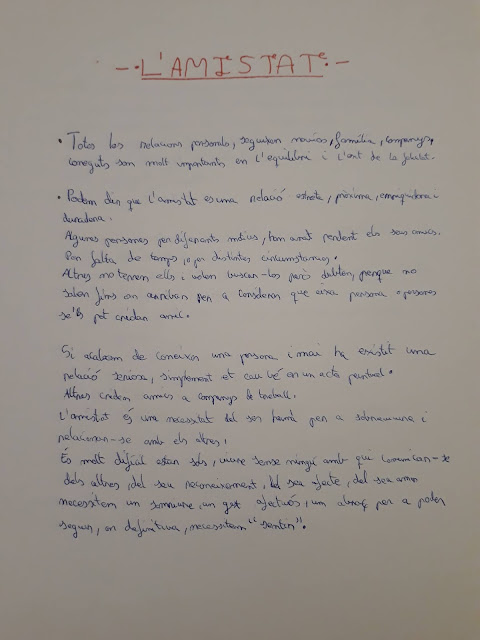 -·L'AMISTAT·-
· Totes les relacions personals, seguixen novios, família, companys,
coneguts son molt importants en l'equilibri i l'art de la felicitat.
· Podem dir que l'amistat es una relació estreta, pròxima, enriquidora i
duradora.
Algunes persones per diferents motius, han anat perdent els seus amics.
Per falta de temps, o per distintes circumstancies.
Altres no tenen ells i volen buscar-los però dubten, perque no
saben fins on arriben per a considerar que eixa persona o persones
se'ls pot cridar amic.
Si acabem de coneixer una persona i mai ha existit una
relació seriosa, simplement et cau bé en un acte puntual.
Altres criden amics a companys de treball.
L'amistat és una necessitat del ser humà per a sobreviure i
relacionar-se amb els altres.
És molt difícil estar sols, viure sense ningú amb qui comunicar-se
dels altres, del seu reconeixement, del seu afecte, del seu amor
necessitem un somriure, un gest afectuós, un abraç per a poder
seguir, en definitiva, necessitem "sentir".